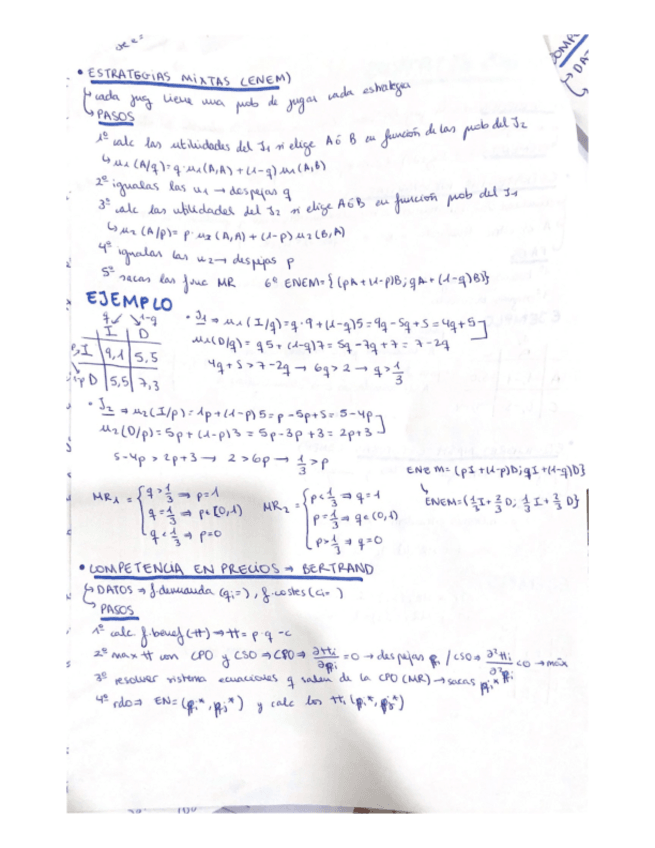 • ESTRATEGIAS MIXTAS (ENEM)
↳ cada jug tiene una prob de jugar cada estrategia
↳ PASOS
1º calc las utilidades del J1 si elige A ó B en función de las prob del J2
↳ u1 (A/q) = q · u1(A,A) + (1-q) u1(A,B)
2º igualas las u1 → despejas q
3º calc las utilidades del J2 si elige A ó B en función prob del J1
↳ u2 (A/p) = p · u2 (A,A) + (1-p) u2 (B,A)
4º igualas las u2 → despejas p
5º sacas las func MR 6º ENEM = {(pA + (1-p)B; qA + (1-q)B)}
EJEMPLO
q 1-q
I D
p I 9,1 5,5
1-p D 5,5 7,3
• J1 ⇒ u1 (I/q) = q · 9 + (1-q)5 = 9q - 5q + 5 = 4q + 5
u1(D/q) = q5 + (1-q)7 = 5q - 7q + 7 = 7 - 2q
4q + 5 > 7 - 2q → 6q > 2 → q > 1/3
• J2 ⇒ u2 (I/p) = 1p + (1-p) 5 = p - 5p + 5 = 5 - 4p
u2 (D/p) = 5p + (1-p) 3 = 5p - 3p + 3 = 2p + 3
5 - 4p > 2p + 3 → 2 > 6p → 1/3 > p
ENEM = (pI + (1-p)D; qI + (1-q)D}
↳ ENEM = {1/3 I + 2/3 D; 1/3 I + 2/3 D}
MR1 = { q > 1/3 ⇒ p = 1
q = 1/3 ⇒ p ∈ [0,1)
q < 1/3 ⇒ p = 0
MR2 = { p < 1/3 ⇒ q = 1
p = 1/3 ⇒ q ∈ (0,1)
p > 1/3 ⇒ q = 0
• COMPETENCIA EN PRECIOS ⇒ BERTRAND
↳ DATOS ⇒ f. demanda (qi = ), f. costes (ci = )
↳ PASOS
1º calc f. benef (π) ⇒ π = p · q - c
2º max π con CPO y CSO ⇒ CPO ⇒ ∂πi/∂pi = 0 → despejas pi / CSO ⇒ ∂²πi/∂²pi < 0 → máx
3º resolver sistema ecuaciones q salen de la CPO (MR) → sacas pi*
4º rdo ⇒ EN = (pi*, pj*) y calc los πi (pi*, pj*)